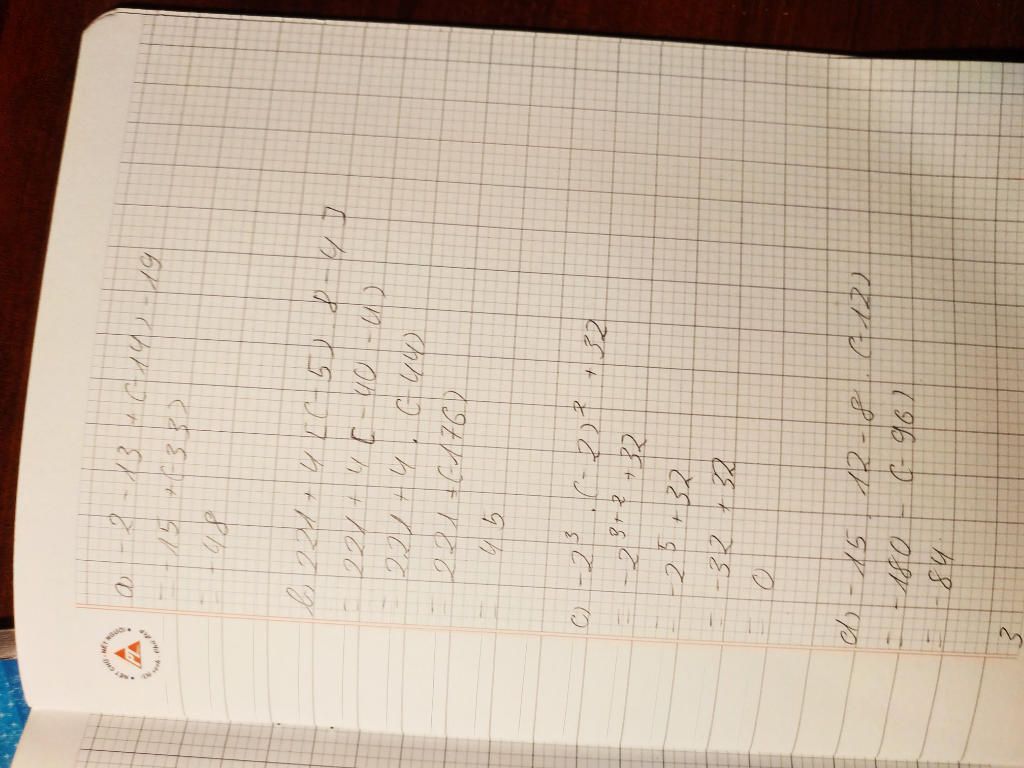 a) -2 -13 + (-14) -19
= -15 + (-33)
= -48
b) 221 + 4 [(-5) . 8 - 4]
= 221 + 4 [-40 - 4)
= 221 + 4 . (-44)
= 221 + (-176)
= 45
c) -2³ . (-2)² + 32
= -2³⁺² + 32
= -2⁵ + 32
= -32 + 32
= 0
d) -15 . 12 - 8 . (-12)
= -180 - (-96)
= -84
3
NÉT CHỮ - NẾT NGƯỜI